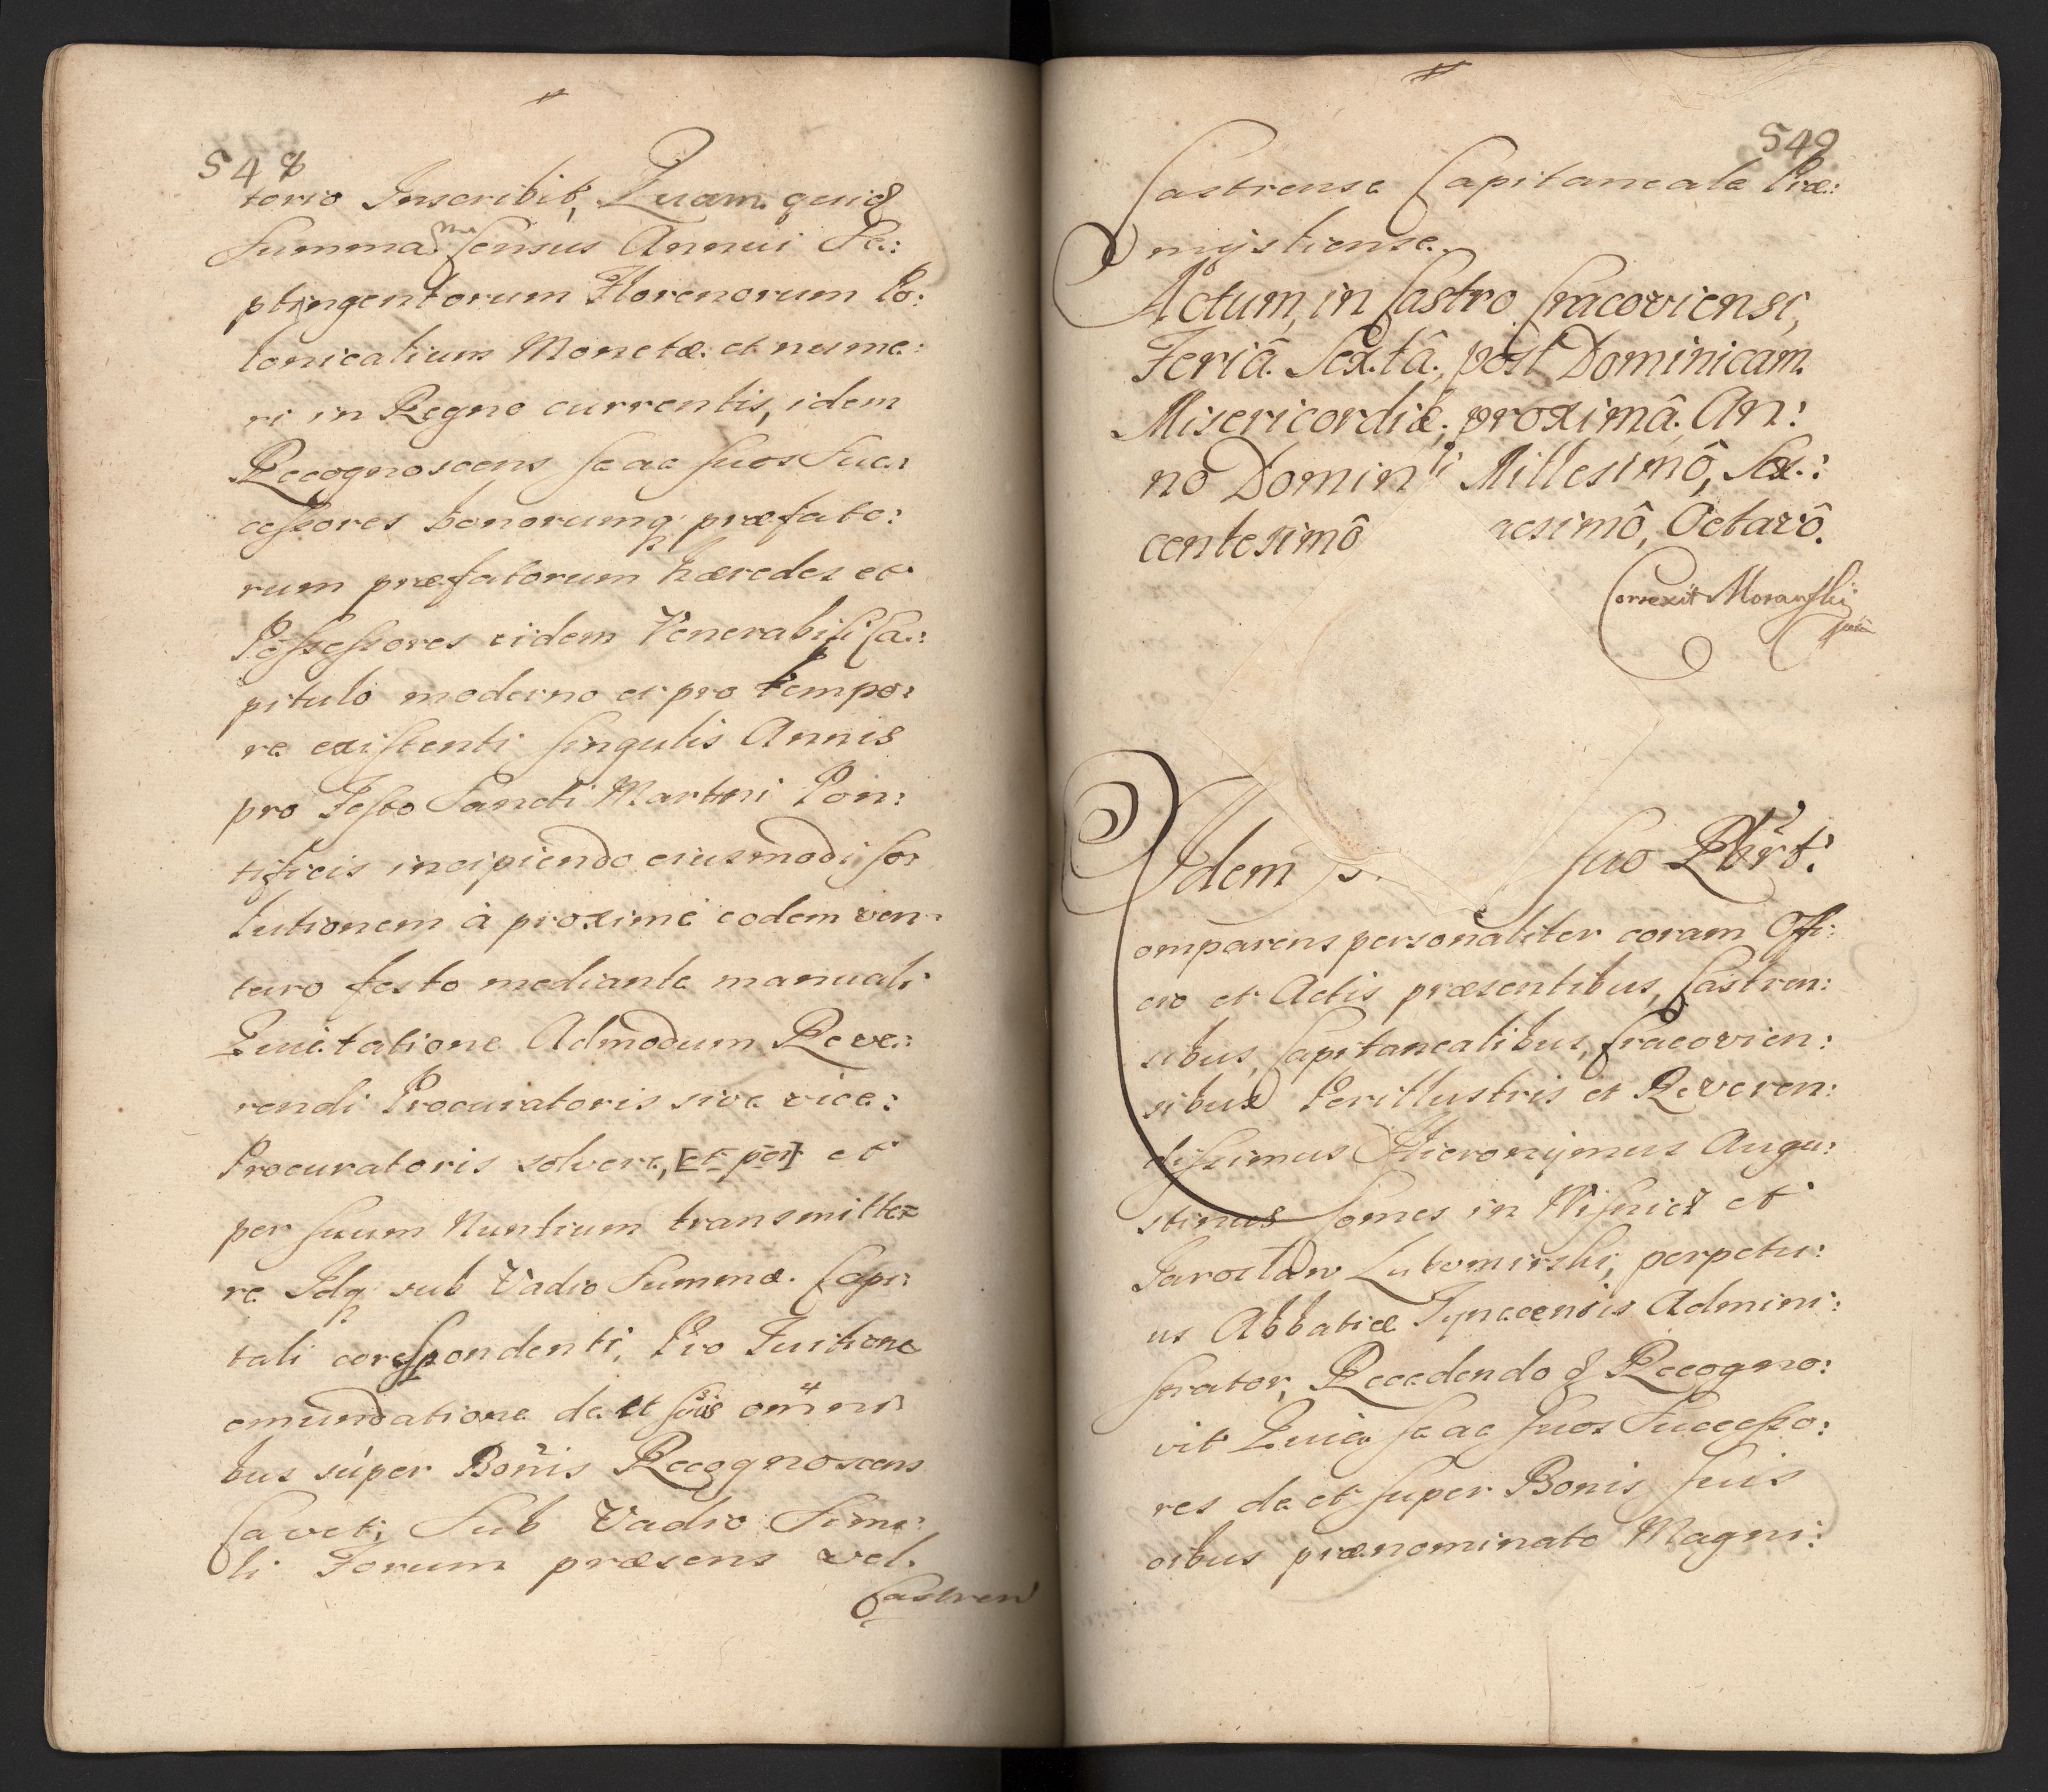 548
torio Inscribit, Quam quid
Summa me Census Annui Se:
ptingentorum Florenorum Po:
lonicalium Monetæ et nume:
ri in Regno currentis, idem
Recognoscens se ac suos Suc:
cessores bonorumq præfato:
rum præfatorum hæredes et
Possessores eidem Venerabili Ca:
pitulo moderno et pro tempo:
re existenti singulis Annis
pro Festo Sancti Martini Pon:
tificis incipiendo eiusmodi so:
lutionem à proximè eodem ven:
turo festo mediante manuali
Quietatione Admodum Reve:
rendi Procuratoris sive vice:
Procuratoris solvere, [et per] et
per suum Nuntium transmitte=
re Idq sub Vadio Summæ Capi:
tali corespondenti, Pro Tuitione
emundatione de et suis omni
bus súper Bonis Recognoscens
Cavet, Sub Vadio Simi:
li Forum præsens vel
Castren
549
Castrense Capitaneale Præ:
mysliense.
Actum, in Castro Cracoviensi,
Feriâ Sextâ, post Dominicam
Misericordiæ, proximâ. An:
no Domini Millesimô, Sex:
centesimô esimô, Octavô.
Correxit Morawski
Idem suo
omparens personaliter coram Offi:
cio et Actis præsentibus, Castren:
sibus, Capitanealibus, Cracovien:
sibus Perillustris et Reveren:
dissimus Hieronymus Augu:
stinus Comes in Wisnicz et
Jaroslaw Lubomirski, perpetu:
us Abbatiæ Tynecensis Admini:
strator, Recedendo & Recogno:
vit Quia se ac suos Successo:
res de et super Bonis suis
oibus prænominato Magni: